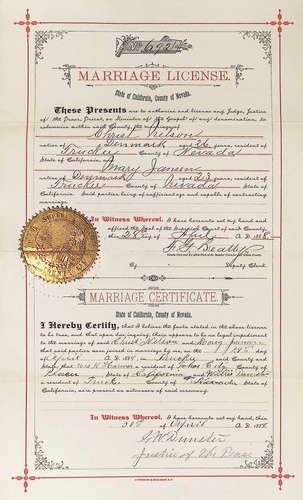 692
MARRIAGE LICENSE.
State of California, County of Nevada.
These Presents are to authorize and license any Judge, Justice
of the Peace, Priest, or Minister of the Gospel of any denomination, to
solemnize within said County the marriage of
Christ Nelson
native of Denmark aged 26 years, resident of
Truckee County of Nevada
State of California, and
Mary Jansen
native of Denmark aged 23 years, resident of
Truckee County of Nevada State of
California. Said parties being of sufficient age and capable of contracting
marriage.
In Witness Whereof, I have hereunto set my hand and
affixed the Seal of the Superior Court of said County
this 28 day of April A.D. 188
F. G. Beatty
Deputy Clerk
MARRIAGE CERTIFICATE.
State of California, County of Nevada.
I Hereby Certify, that I believe the facts stated in the above license
to be true, and that upon due inquiry, there appears to be no legal impediment
to the marriage of said Christ Nelson and Mary Jansen
that said parties were joined in marriage by me, on the 28th day
of April A.D. 188 in Truckee said County and
State; that a resident of Tahoe City County of
Placer State of California and Willis Dunster
a resident of Truckee County of Nevada State of
California, are present as witnesses of said ceremony.
In Witness Whereof, I have hereunto set my hand, this
30th of April A.D. 188
G W Dunster
Justice of the Peace